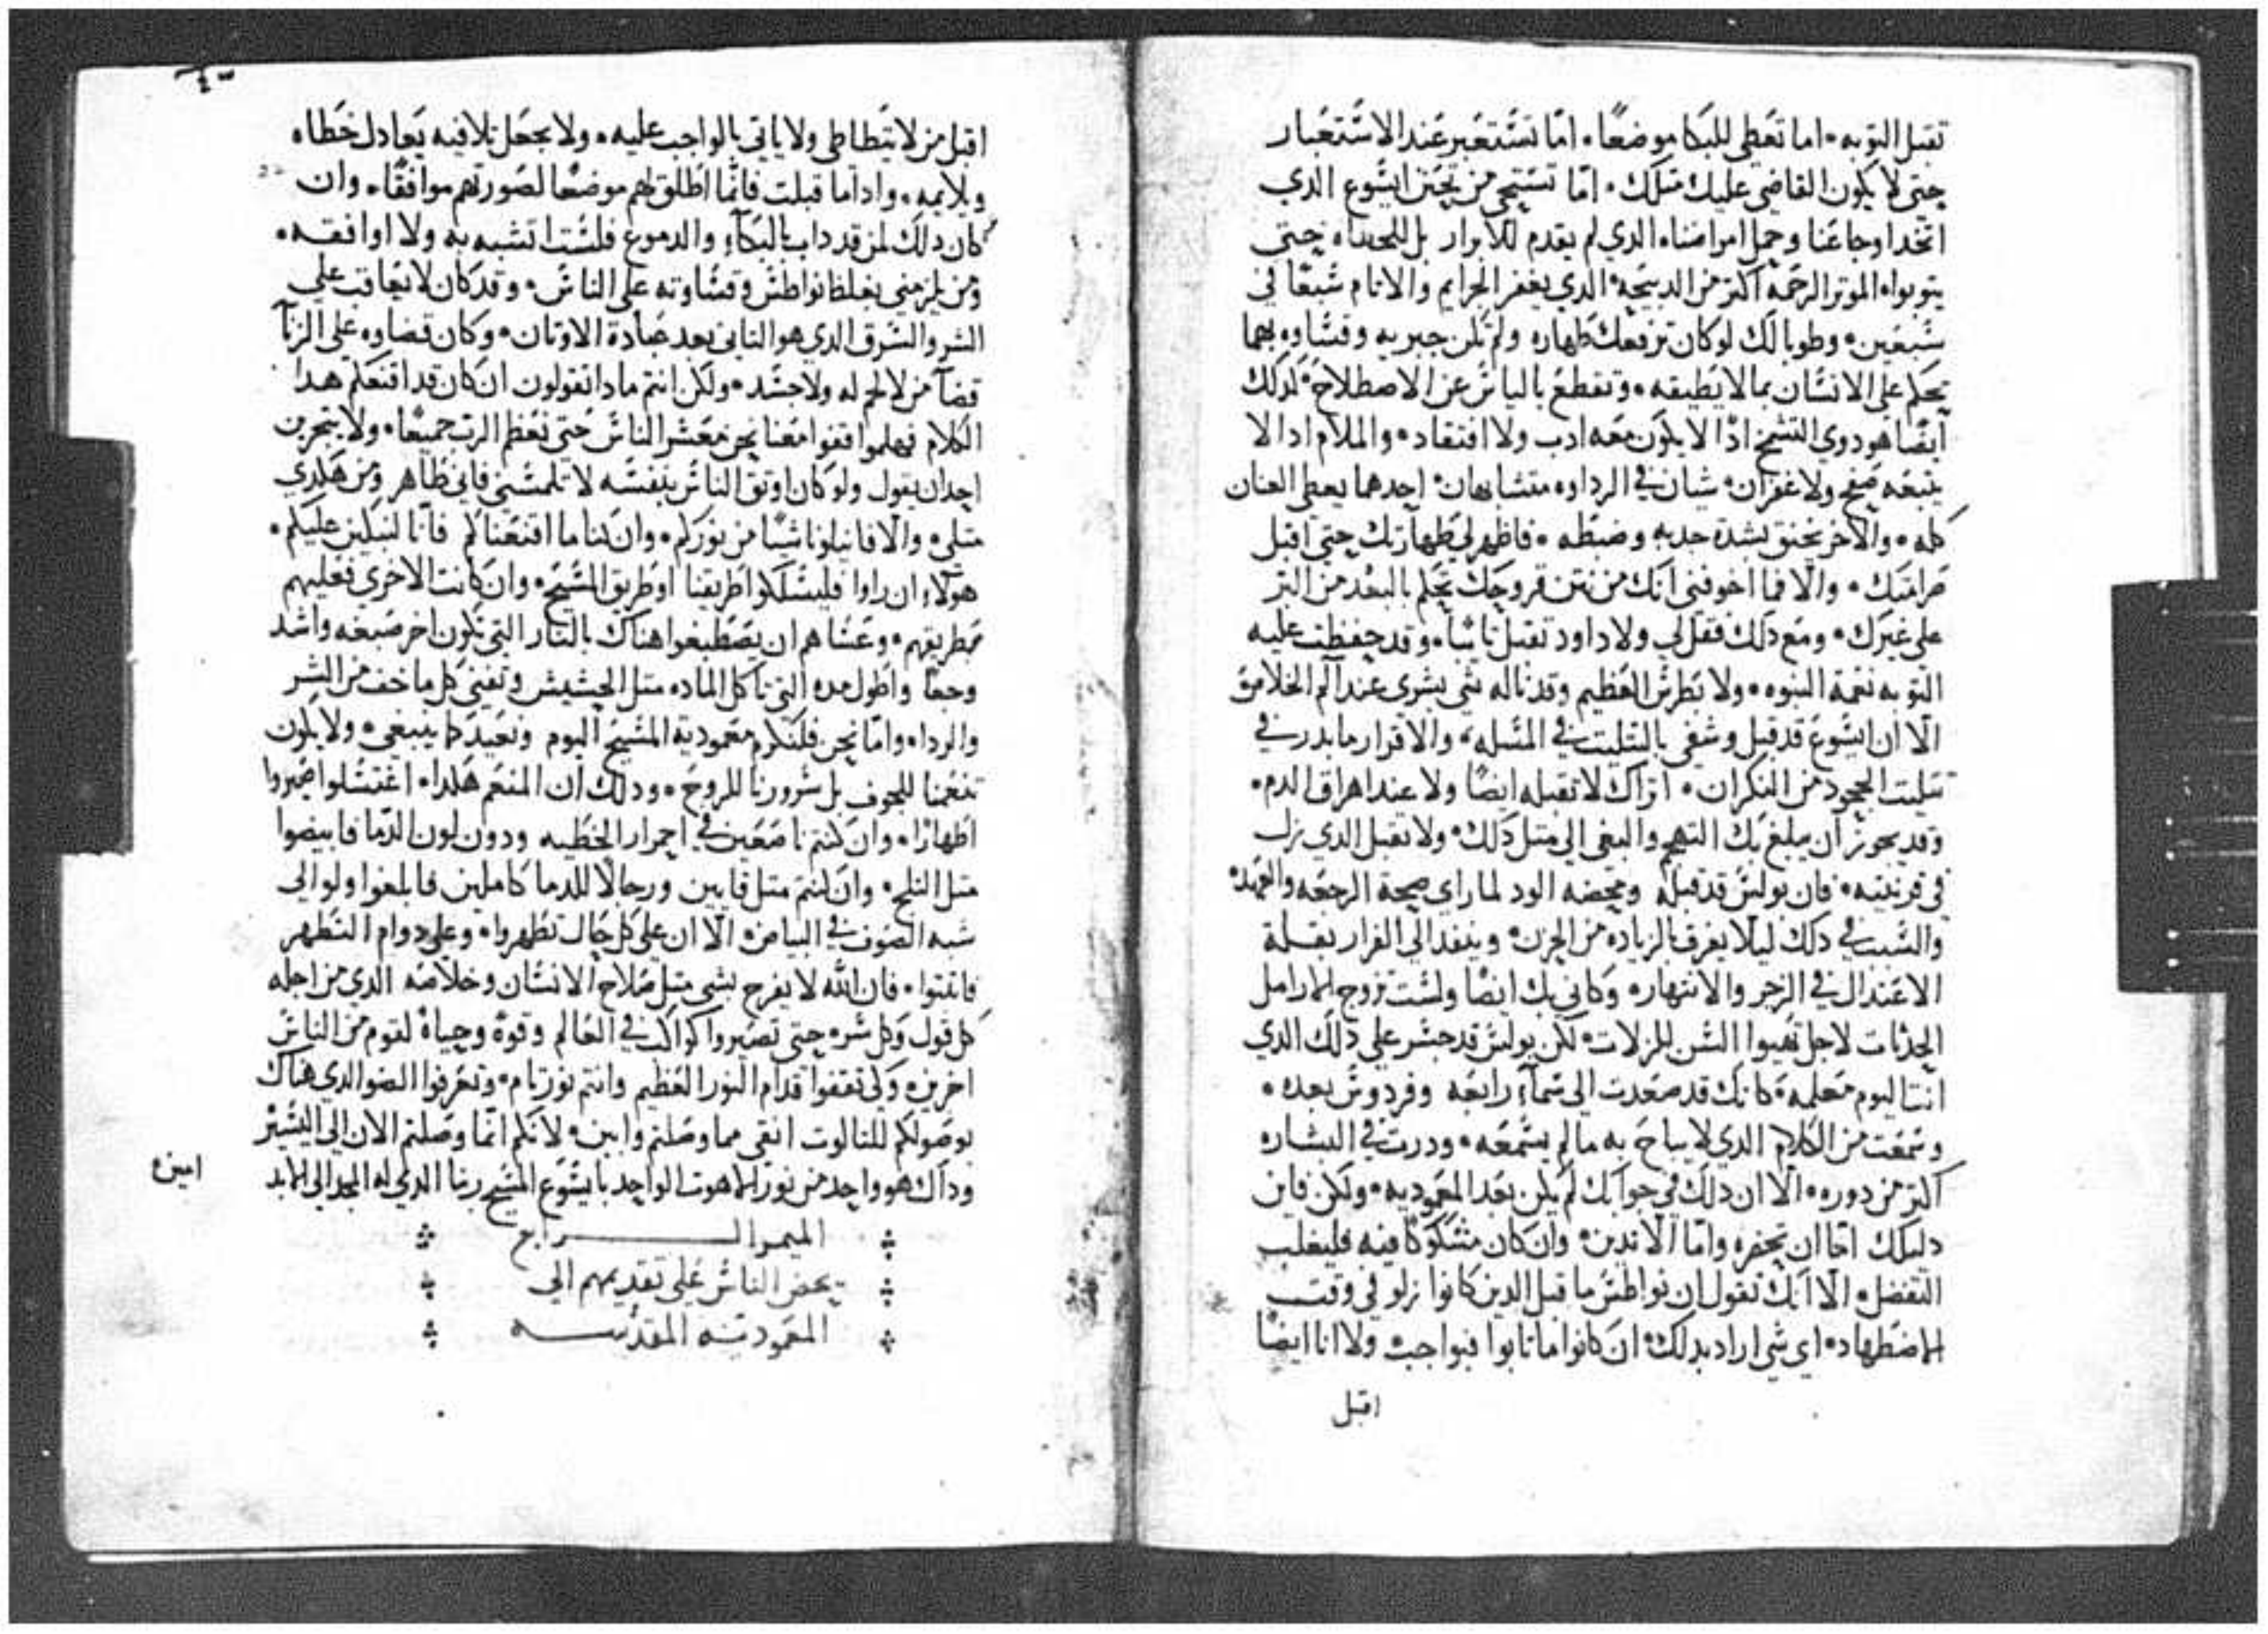 تقبل التوبه. اما تعطي للبكا موضعًا. امّا تستعبر عند الاستعبار
حتي لا يكون القاضي عليك مثلك. امّا تستحي من تحنن ايشوع الدي
اتخد اوجاعنا وحمل امراضنا. الدي لم يقدم للابرار بل للخطاه حتي
يتوبوا. الموتر الرحمة اكتر من الدبيحة. الدي يغفر الجرايم والاتام سبعًا في
سبعين. وطوبا لك لو كان ترفعك طهاره ولم تكن جبريه وقساوه بهما
تحكم علي الانسان بما لا يطيقه. وتقطع بالياس عن الاصطلاح. لدلك
ايضًا هو دوي التسمح ادًا لا يكون معه ادب ولا افتقاد. والملام ادا لا
يتبعه صفح ولا غفران. شيان في الرداوه متشابهان. احدهما يعطي العنان
كله. والاخر يخنق بشدة حدبه وضبطه. فاظهر لي طهارتك حتي اقبل
صرامتك. والا فما اخوفني انك من نتن قروحك تحكم بالبعد من البر
علي غيرك. ومع دلك فقل لي ولا داود تقبل تايبًا. وقد حفظت عليه
التوبه نعمة النبوه. ولا بطرس العظيم وقد ناله شي بشري عند الم الخلاص
الا ان ايشوع قد قبل وشفي بالتتليت في المسله، والاقرار ما بدر في
تتليت الجحود من النكران. اتراك لا تقبله ايضًا ولا عند اهراق الدم.
وقد يجوز ان يبلغ بك التهجم والبغي الي متل دلك. ولا تقبل الدي زل
في قرنتيه. فان بولس قد قبله ومحضه الود لما راي صحة الرجعه والعهد.
والسبب في دلك ليلا يغرق بالزياده من الحزن. وينفد الي الفرار بقلة
الاعتدال في الزجر والانتهار. وكاني بك ايضًا ولست تزوج الارامل
الحدثات لاجل تهيوا السن للزلات. لكن بولس قد جسر علي دلك الدي
انت اليوم معلمه كانك قد صعدت الي سمآء رابعه وفردوس بعده.
وسمعت من الكلام الدي لا يباح به ما لم يسمعه. ودرت في البشاره
اكتر من دوره. الا ان دلك في جوابك لم يكن بعد المعموديه. ولكن فاين
دليلك امّا ان تحضره وامّا الا تدين. وان كان مشكوكًا فيه فليغلب
التفضل. الا انك تقول ان نواطس ما قبل الدين كانوا زلو في وقت
الاضطهاد. اي شي اراد بدلك. ان كانوا ما تابوا فبواجب ولا انا ايضًا
اقبل
اقبل من لا يتطاطي ولا ياتي بالواجب عليه. ولا يجعل تلافيه يعادل خطاه
ويلايمه. وادا ما قبلت فانما اطلق لهم موضعًا لصورتهم موافقًا. وان
كان دلك لمن قد داب بالبكآء والدموع فلست اتشبه به ولا اوافقه.
ومن يلزمني بغلظ نواطس وقساوته علي الناس. وقد كان لا يعاقب علي
الشر والشرق الدي هو التاني بعد عبادة الاوتان. وكان قضاوه علي الزنآ
قضآ من لا لحم له ولا جسد. ولكن انتم مادا تقولون ان كان قد اقنعكم هدا
الكلام فهلموا قفوا معنا نحن معشر الناس حتي نعظم الرب جميعًا. ولا يتجرين
احد ان يقول ولو كان اوتق الناس بنفسه لا تلمسني فاني طاهر ومن هكدي
متلي. والا فانيلونا شيًا من نوركم. وان كنا ما اقنعناكم فانا لنبكين عليكم.
هولاء ان راوا فليسلكوا طريقنا او طريق المسيح. وان كانت الاخري فعليهم
بطريقهم. وعسا هم ان يصطبغوا هناك بالنار التي تكون اخر صبغه واشد
وجعًا واطول مده التي تاكل الماده متل الحشيش وتفني كل ما خف من الشر
والرداه. وامّا نحن فلنكرم معمودية المسيح اليوم ونعيد كما ينبغي. ولا يكون
تنعمنا للجوف بل سرورنا للروح. ودلك ان المنعم هكدا. اغتسلوا صيروا
اطهارًا. وان كنتم ناصعين في احمرار الخطيه ودون لون الدما فابيضوا
متل التلج. وان كنتم متل قابين ورجالا للدما كاملين فابلغوا ولو الي
شبه الصوف في البياض. الا ان علي كل حال تطهروا. وعلي دوام التطهر
فاتبتوا. فان الله لا يفرح بشي متل صلاح الانسان وخلاصه الدي من اجله
كل قول وكل سر. حتي تصيروا كواكب في العالم وقوة وحياة لقوم من الناس
اخرين. ولكي تقفوا قدام النور العظيم وانتم نور تام. وتعرفوا الضو الدي هناك
بوصولكم للتالوت انقي مما وصلتم وابين. لانكم انما وصلتم الان الي اليسير
وداك هو واحد من نور اللاهوت الواحد بايشوع المسيح ربنا الدي له المجد الي الابد
امين.
الميمر الرابع
يحض الناس علي تقديمهم الي
المعموديه المقدسه